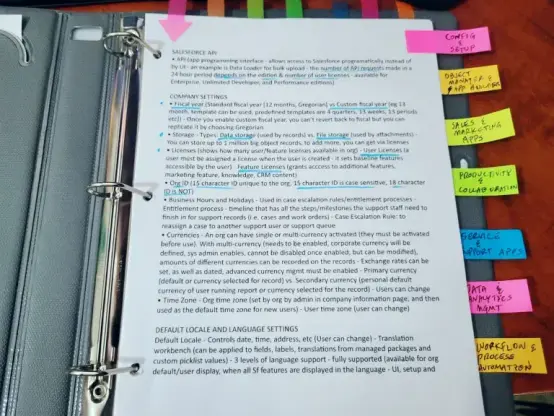 SALESFORCE API
• API (app programming interface - allows access to Salesforce programatically instead of
by UI - an example is Data Loader for bulk upload - the number of API requests made in a
24 hour period depends on the edition & number of user licenses - available for
Enterprise, Unlimited Developer, and Performance editions)
COMPANY SETTINGS
• Fiscal year (Standard fiscal year (12 months, Gregorian) vs Custom fiscal year (eg 13
month, template can be used, predefined templates are 4 quarters, 13 weeks, 13 periods
etc)) - Once you enable custom fiscal year, you can't revert back to fiscal but you can
replicate it by choosing Gregorian
• Storage - Types: Data storage (used by records) vs File storage (used by attachments) -
You can store up to 1 million big object records, to add more, you can get via licenses
• Licenses (shows how many user/feature licenses available in org) - User Licenses (a
user must be assigned a license when the user is created - it sets baseline features
accessible by the user) Feature Licenses (grants access to additional features,
marketing feature, knowledge, CRM content)
• Org ID (15 character ID unique to the org, 15 character ID is case sensitive, 18 character
ID is NOT)
• Business Hours and Holidays - Used in case escalation rules/entitlement processes -
Entitlement process - timeline that has all the steps/milestones the support staff need to
finish in for support records (i.e. cases and work orders) - Case Escalation Rule: to
reassign a case to another support user or support queue
• Currencies - An org can have single or multi-currency activated (they must be activated
before use). With multi-currency (needs to be enabled, corporate currency will be
defined, sys admin enables, cannot be disabled once enabled, but can be modified),
amounts of different currencies can be recorded on the records - Exchange rates can be
set, as well as dated, advanced currency mgmt must be enabled - Primary currency
(default or currency selected for record) vs Secondary currency (personal default
currency of user running report or currency selected for the record) - Users can change
• Time Zone - Org time zone (set by org by admin in company information page, and then
used as the default time zone for new users) - User time zone (user can change)
DEFAULT LOCALE AND LANGUAGE SETTINGS
Default Locale - Controls date, time, address, etc (User can change) - Translation
workbench (can be applied to fields, labels, translations from managed packages and
custom picklist values) - 3 levels of language support - fully supported (available for org
default/user display, when all SF features are displayed in the language - UI, setup and
CONFIG
&
SETUP
OBJECT
MANAGER &
APP BUILDER
SALES &
MARKETING
APPS
PRODUCTIVITY
&
COLLABORATION
SERVICE
&
SUPPORT APPS
DATA &
ANALYTICS
MGMT
WORKFLOW &
PROCESS
AUTOMATION